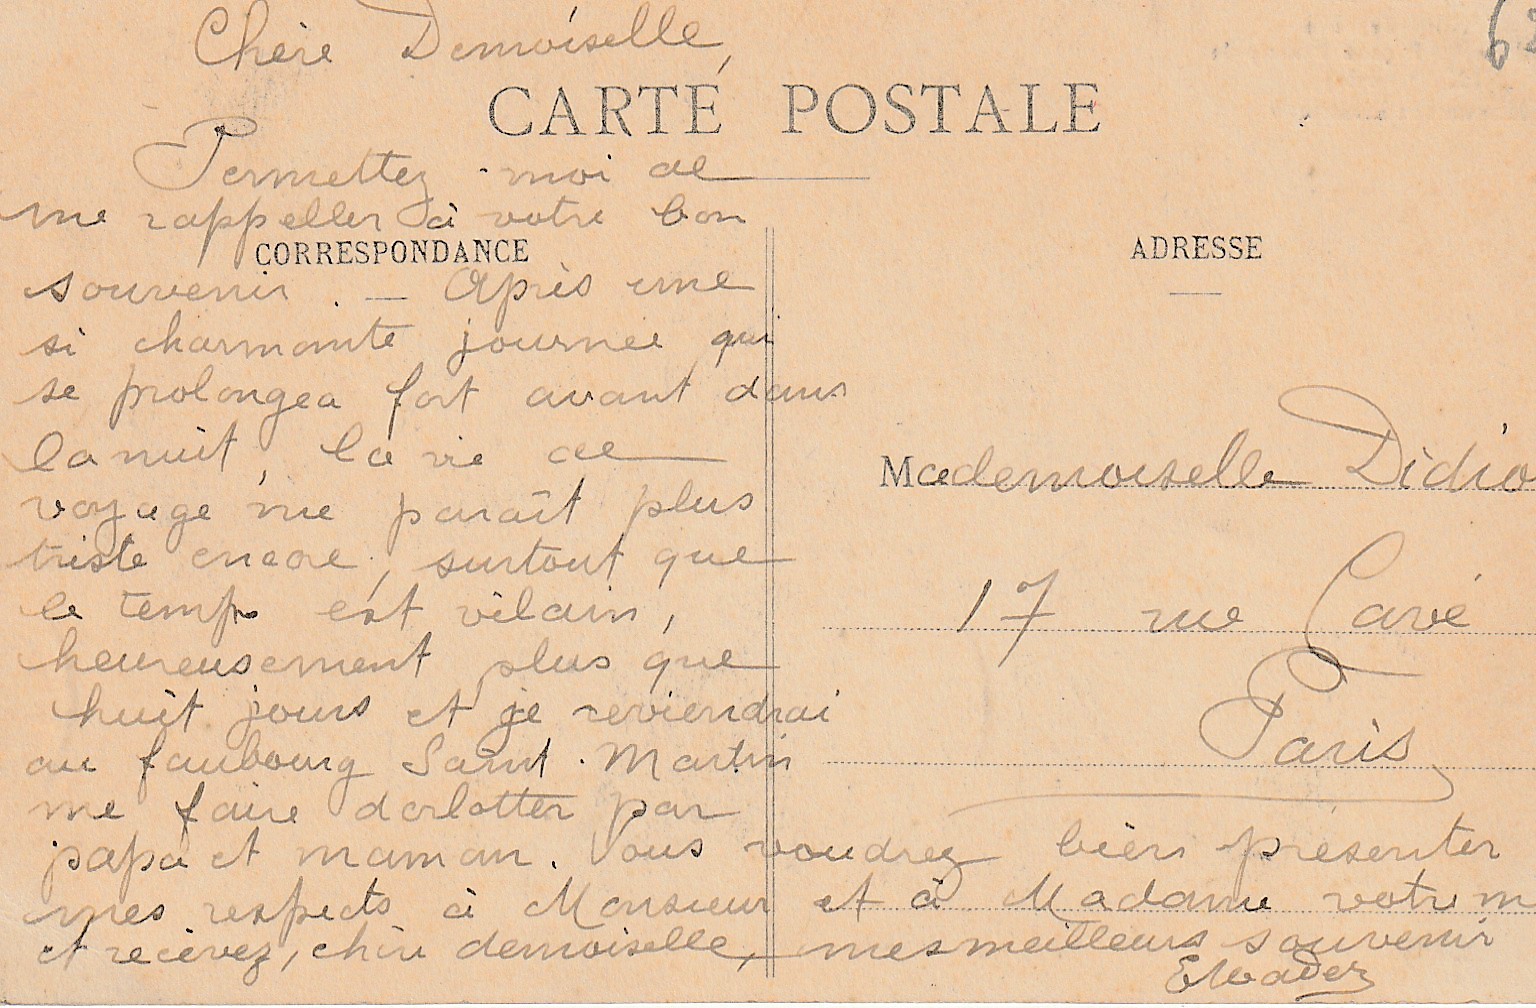 Chère Demoiselle,
CARTE POSTALE
Permettez-moi de
me rappeller à votre bon
CORRESPONDANCE
souvenir. — Après une
si charmante journée qui
se prolongea fort avant dans
la nuit, la vie de
voyage me paraît plus
triste encore, surtout que
le temps est vilain,
heureusement plus que
huit jours et je reviendrai
au faubourg Saint-Martin
me faire dorlotter par
papa et maman. Vous voudrez bien présenter
mes respects à Monsieur et à Madame votre m
et recevez, chère demoiselle, mes meilleurs souvenir
ADRESSE
Mademoiselle Didio
17 rue Cavé
Paris